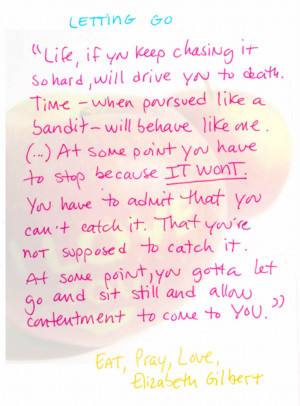 LETTING GO
"Life, if you keep chasing it
so hard, will drive you to death.
Time – when poursued like a
bandit – will behave like one.
(...) At some point you have
to stop because IT WONT.
You have to admit that you
can't catch it. That you're
not supposed to catch it.
At some point, you gotta let
go and sit still and allow
contentment to come to YOU."
EAT, Pray, Love,
Elizabeth Gilbert